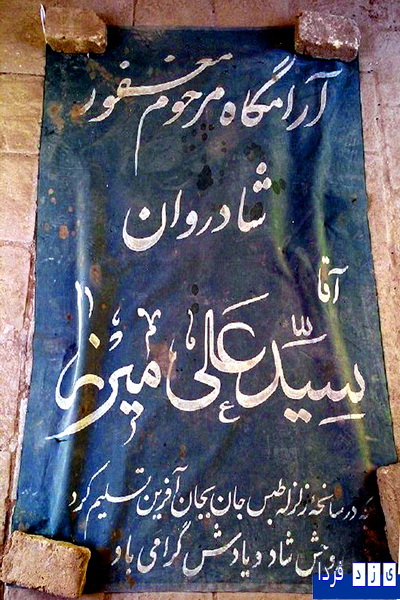 آرامگاه مرحوم مغفور
شادروان
آقا
سید علی میرزا
که در سانحه زلزله طبس جان بجان آفرین تسلیم کرد
روحش شاد و یادش گرامی باد
یزد فردا